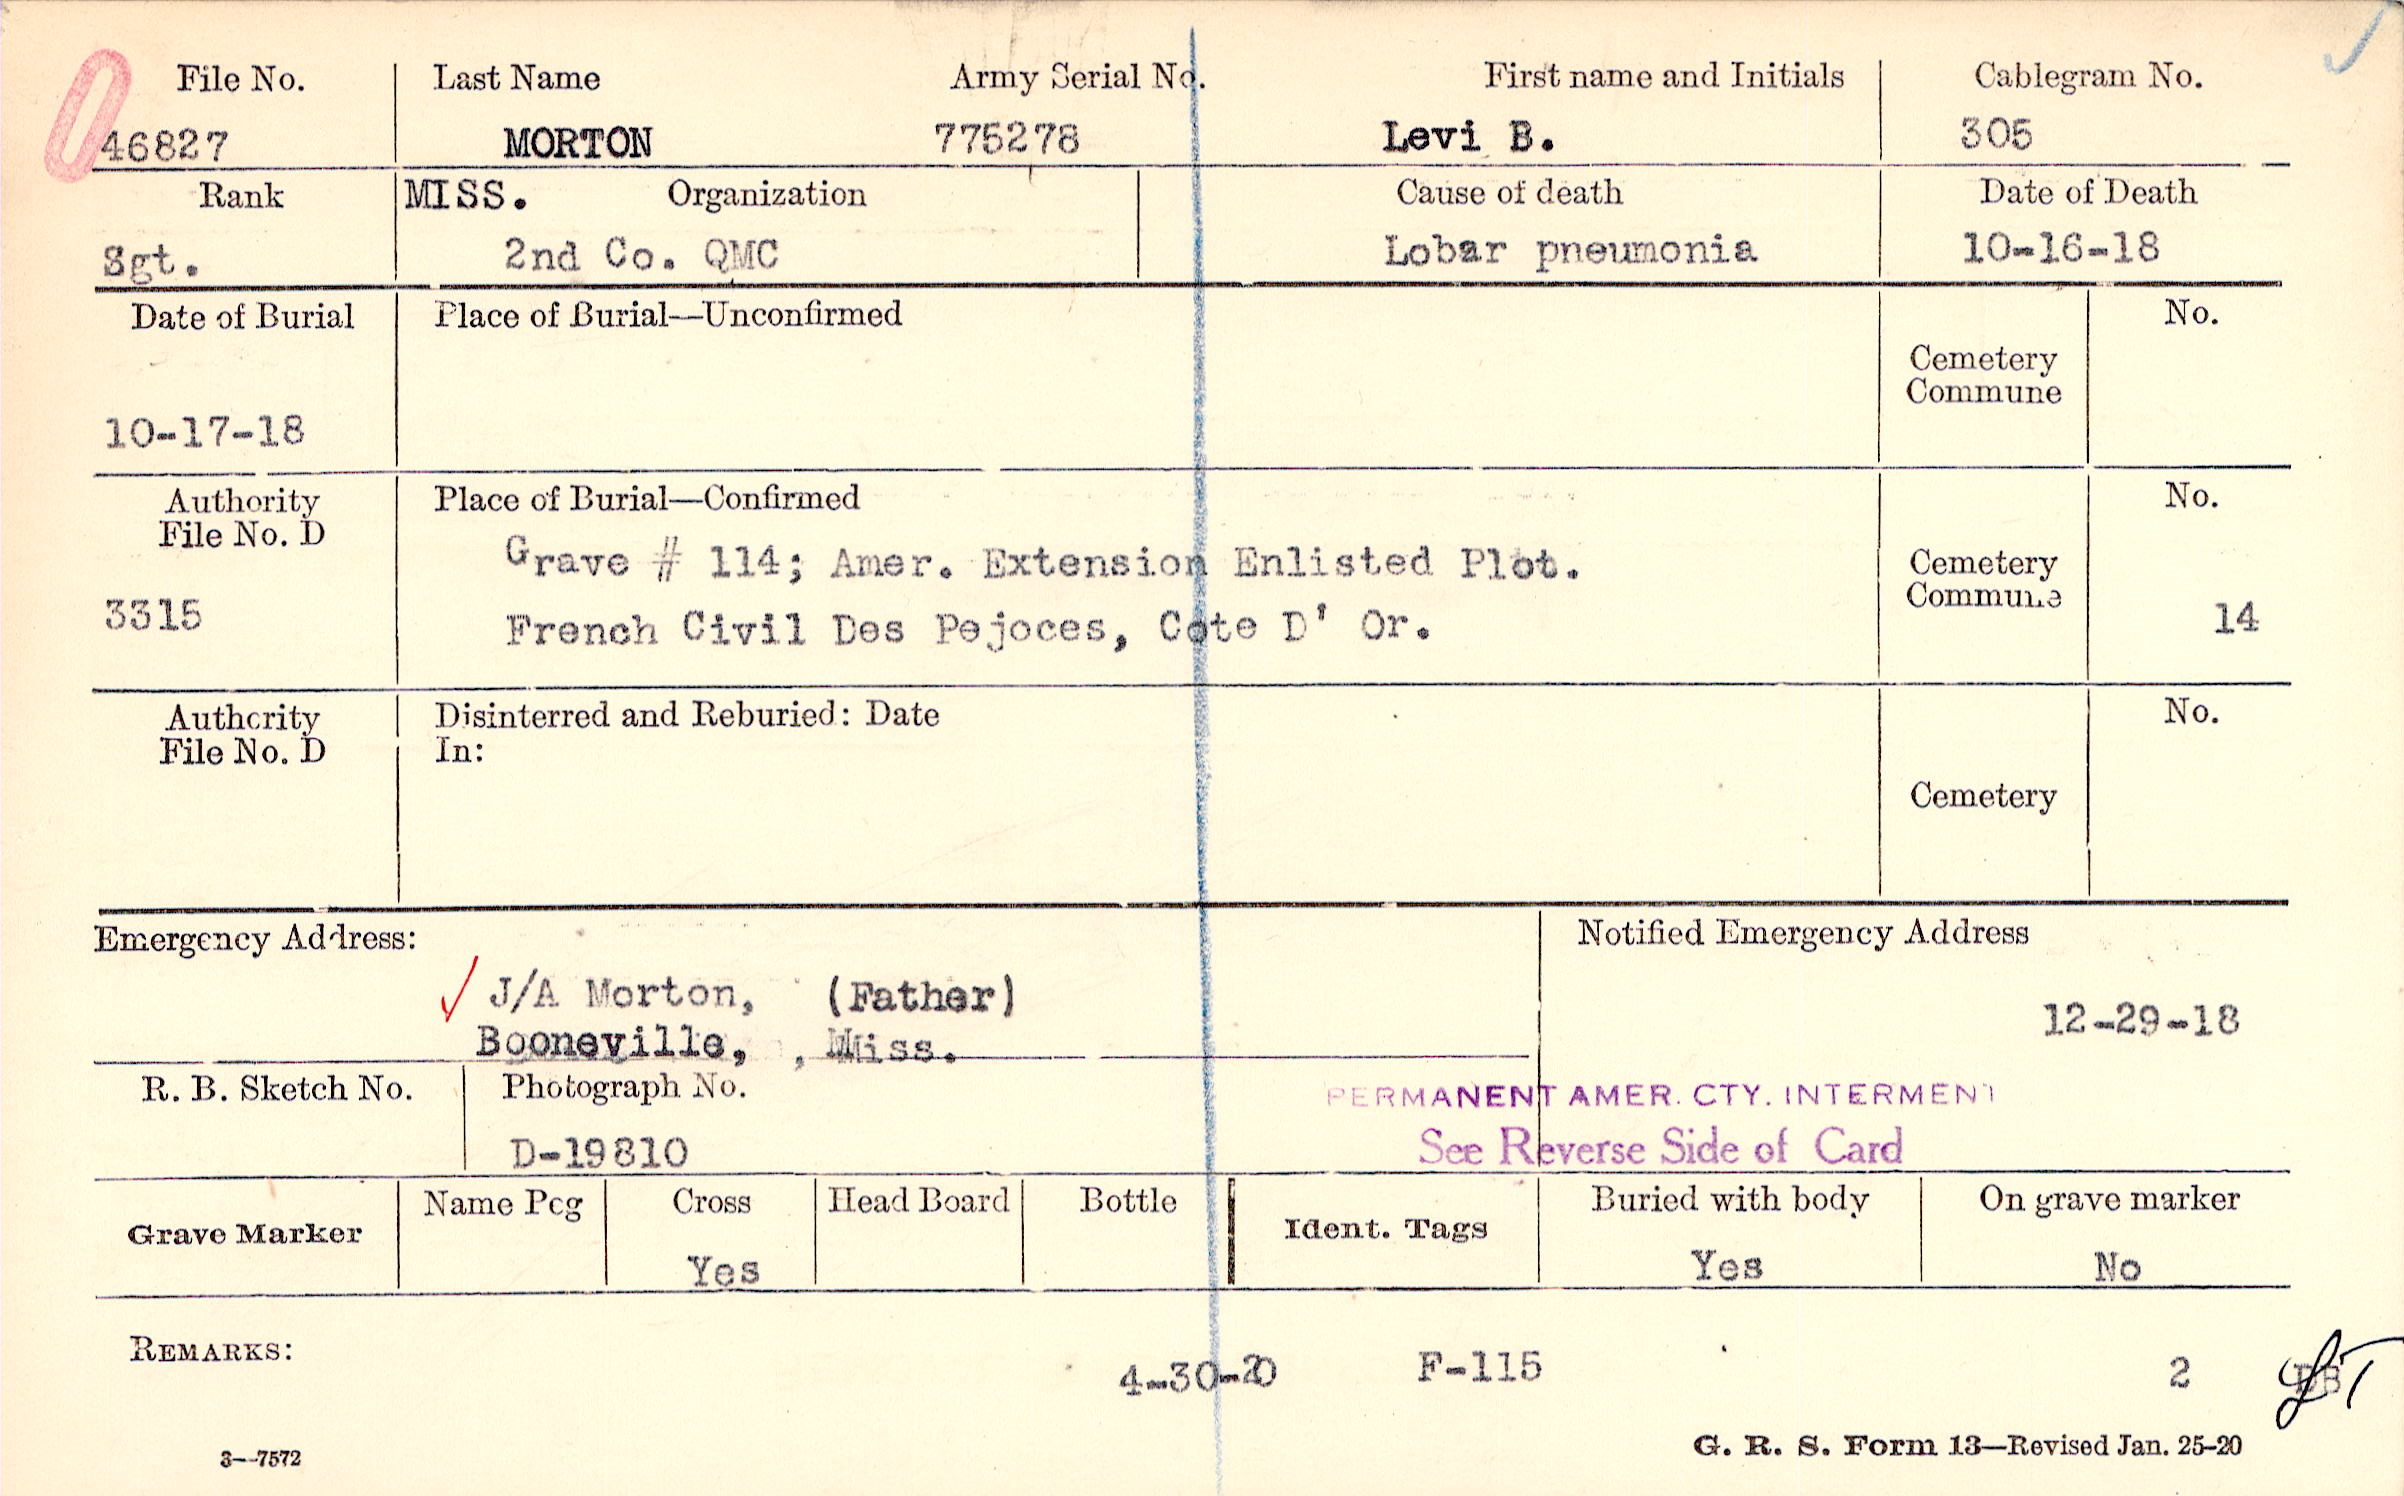 File No. Last Name Army Serial No. First name and Initials Cablegram No.
46827 MORTON 775278 Levi B. 305
Rank MISS. Organization Cause of death Date of Death
Sgt. 2nd Co. QMC Lobar pneumonia 10-16-18
Date of Burial Place of Burial—Unconfirmed No.
Cemetery
Commune
10-17-18
Authority Place of Burial—Confirmed No.
File No. D
Grave # 114; Amer. Extension Enlisted Plot. Cemetery
3315 French Civil Des Pejoces, Cote D' Or. Commune 14
Authority Disinterred and Reburied: Date No.
File No. D In:
Cemetery
Emergency Address: Notified Emergency Address
J/A Morton, (Father) 12-29-18
Booneville, , Miss.
R. B. Sketch No. Photograph No. PERMANENT AMER. CTY. INTERMENT
D-19810 See Reverse Side of Card
Grave Marker Name Peg Cross Head Board Bottle Ident. Tags Buried with body On grave marker
Yes Yes No
REMARKS: 4-30-20 F-115 2
3—7572 G. R. S. Form 13—Revised Jan. 25-20